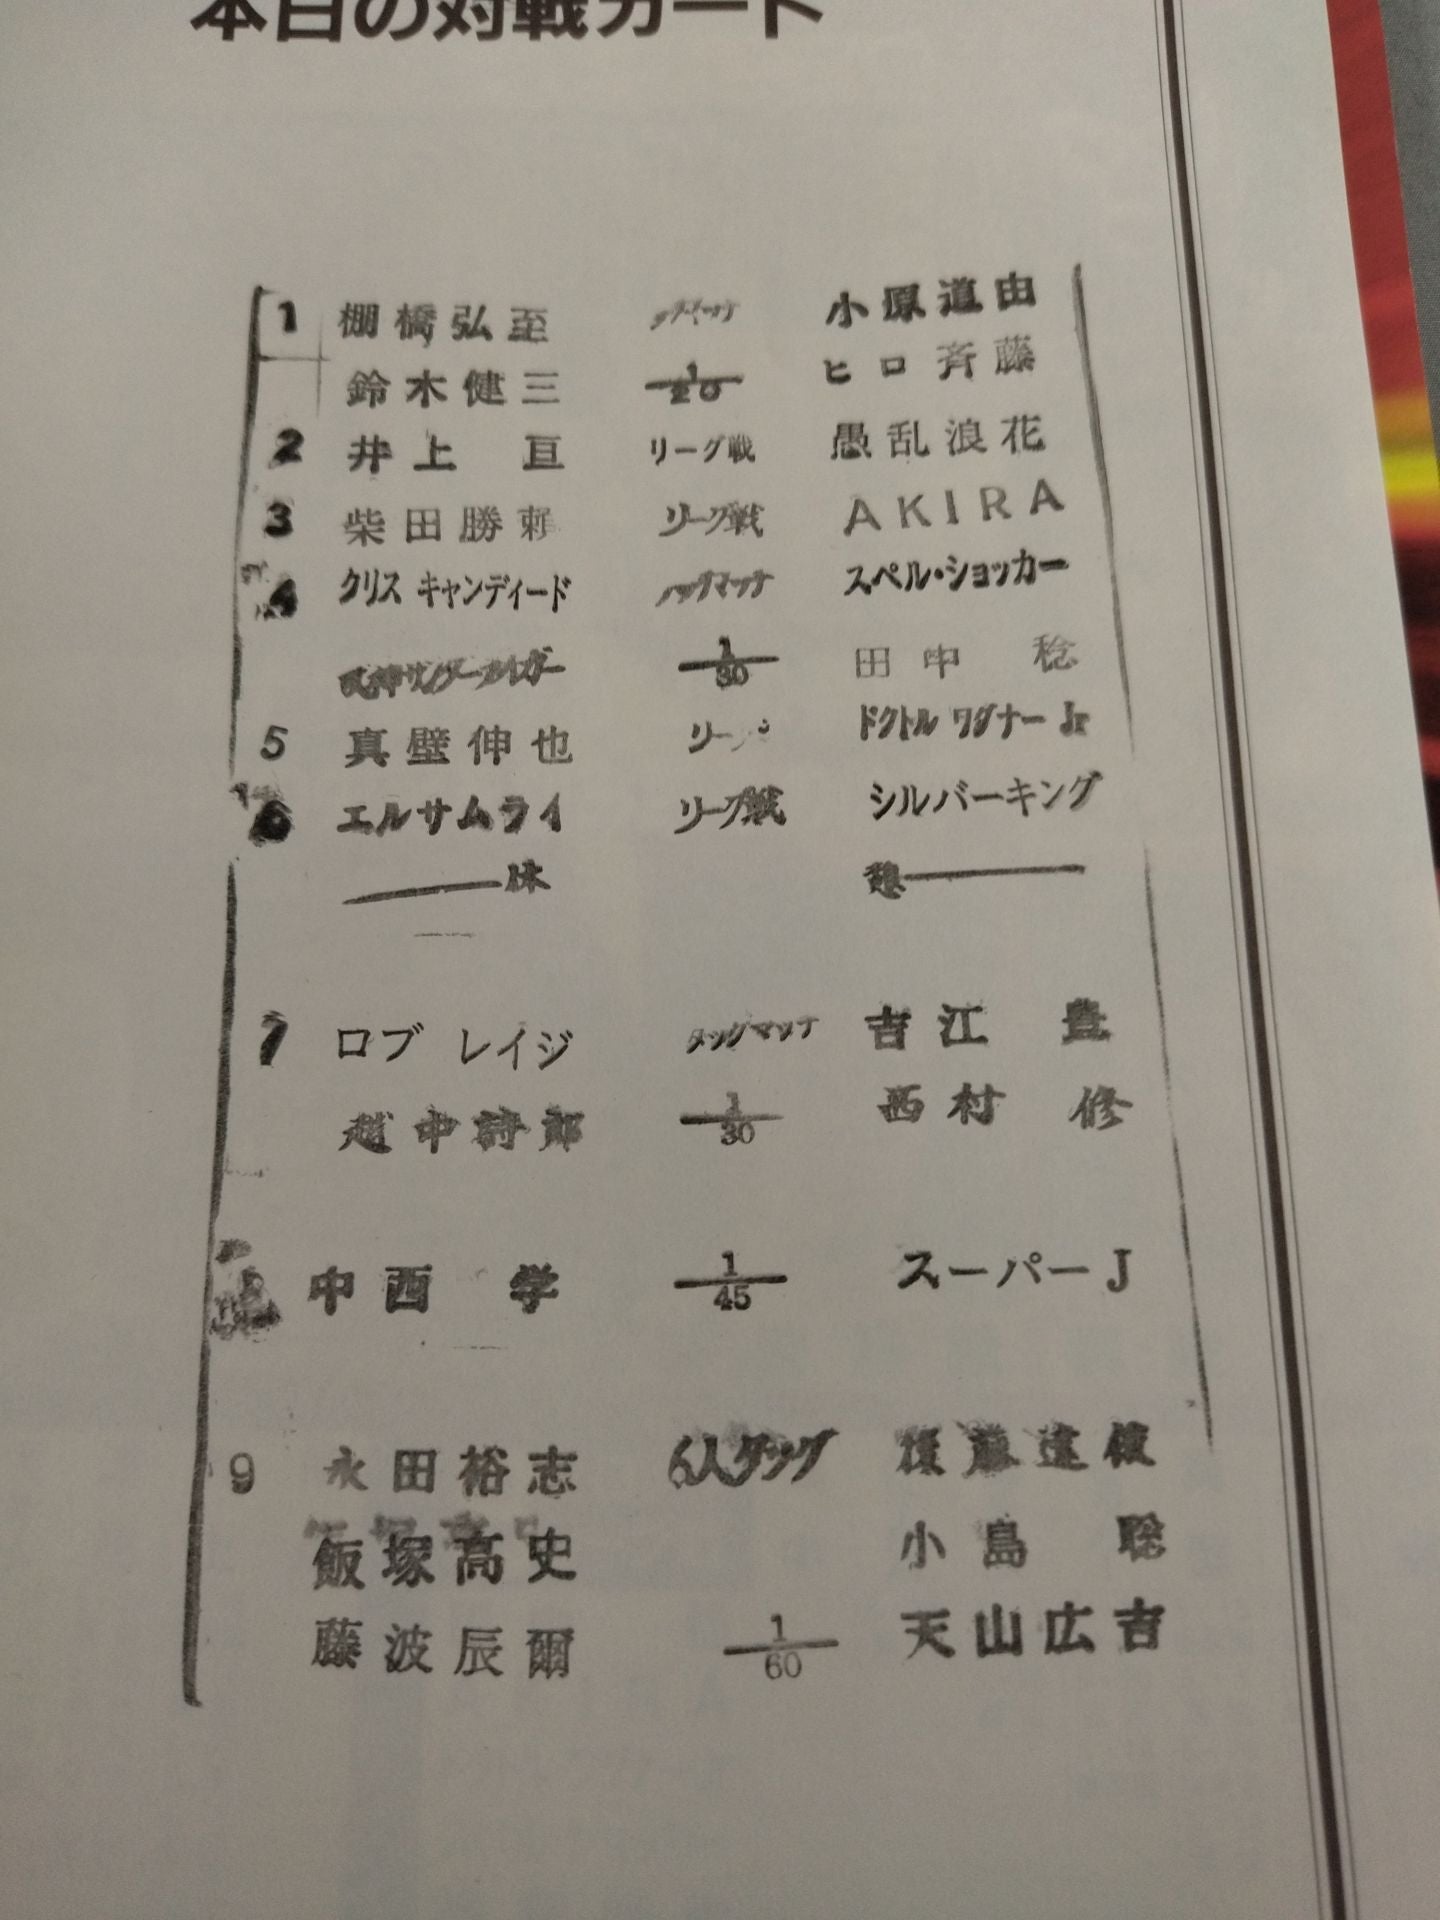 本日の対戦カード
1 棚橋弘至 タッグマッチ 小原道由
鈴木健三 1/20 ヒロ斉藤
2 井上亘 リーグ戦 愚乱浪花
3 柴田勝頼 リーグ戦 AKIRA
4 クリス キャンディード タッグマッチ スペル・ショッカー
1/30 田中 稔
5 真壁伸也 リー ドクトル ワグナー Jr
6 エルサムライ リーグ戦 シルバーキング
休 憩
7 ロブ レイジ タッグマッチ 吉江 豊
越中詩郎 1/30 西村 修
中西 学 1/45 スーパーJ
9 永田裕志 6人タッグ 後藤達俊
飯塚高史 小島 聡
藤波辰爾 1/60 天山広吉